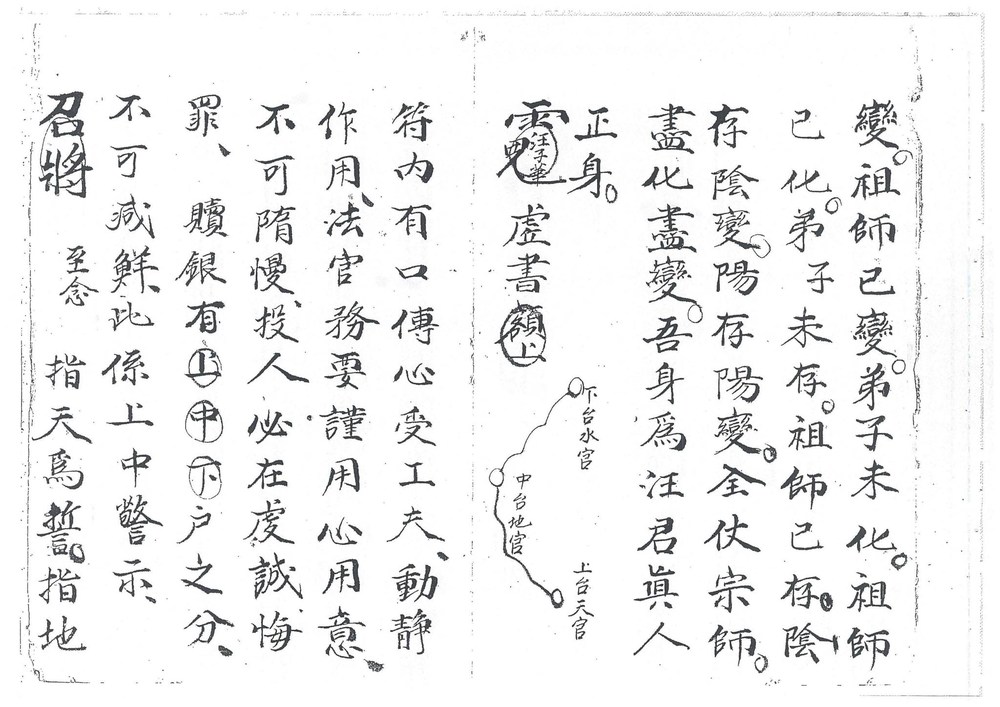 變。祖師已變。弟子未化。祖師
已化。弟子未存。祖師已存。陰
存陰變。陽存陽變。全仗宗師。
盡化盡變。吾身為汪君眞人
正身。
汪子華 虛書額上
下台水官
中台地官
上台天官
符內有口傳心受工夫、動静
作用、法官務要謹用心用意、
不可隋慢、投人必在虔誠悔
罪、贖銀有上中下户之分、
不可减鮮、此係上中警示、
召將 至念 指天爲誓。指地